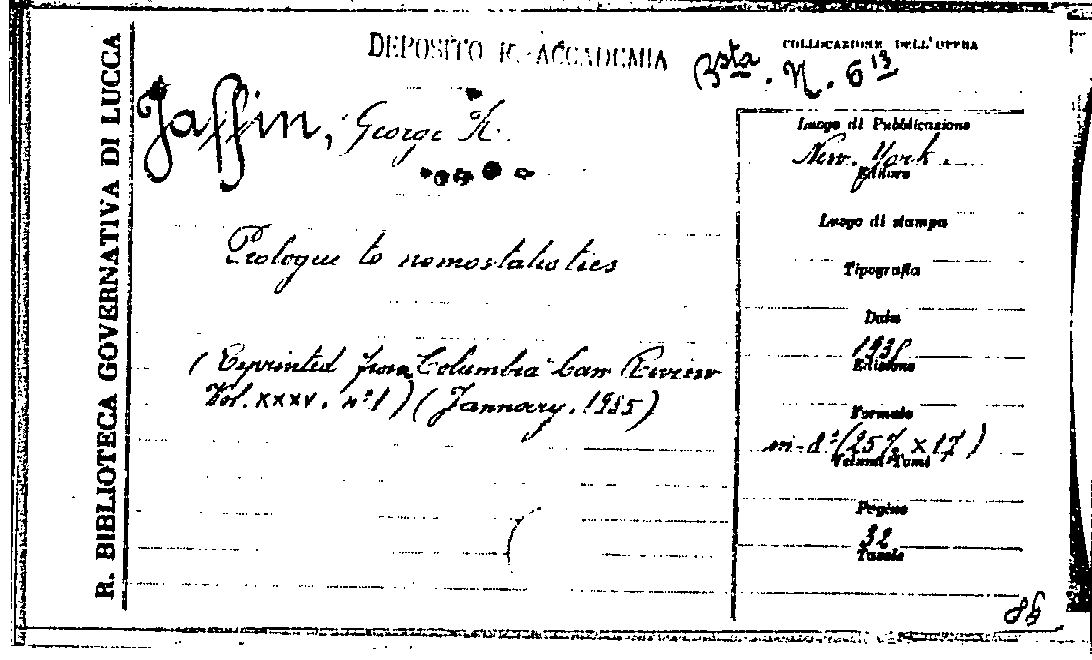 R. BIBLIOTECA GOVERNATIVA DI LUCCA
DEPOSITO R. ACCADEMIA
COLLOCAZIONE DELL'OPERA
Bsta. N. 613
Jaffin, George K.
Prologue to nomostatistics
(Reprinted from Columbia Law Review
Vol. XXXV. n° 1) (Jannary. 1935)
Luogo di Pubblicazione
New-York.
Editore
Luogo di stampa
Tipografia
Data
1935
Edizione
Formato
in-8° (25½ x 17)
Volumi-Tomi
Pagine
32
Tavole